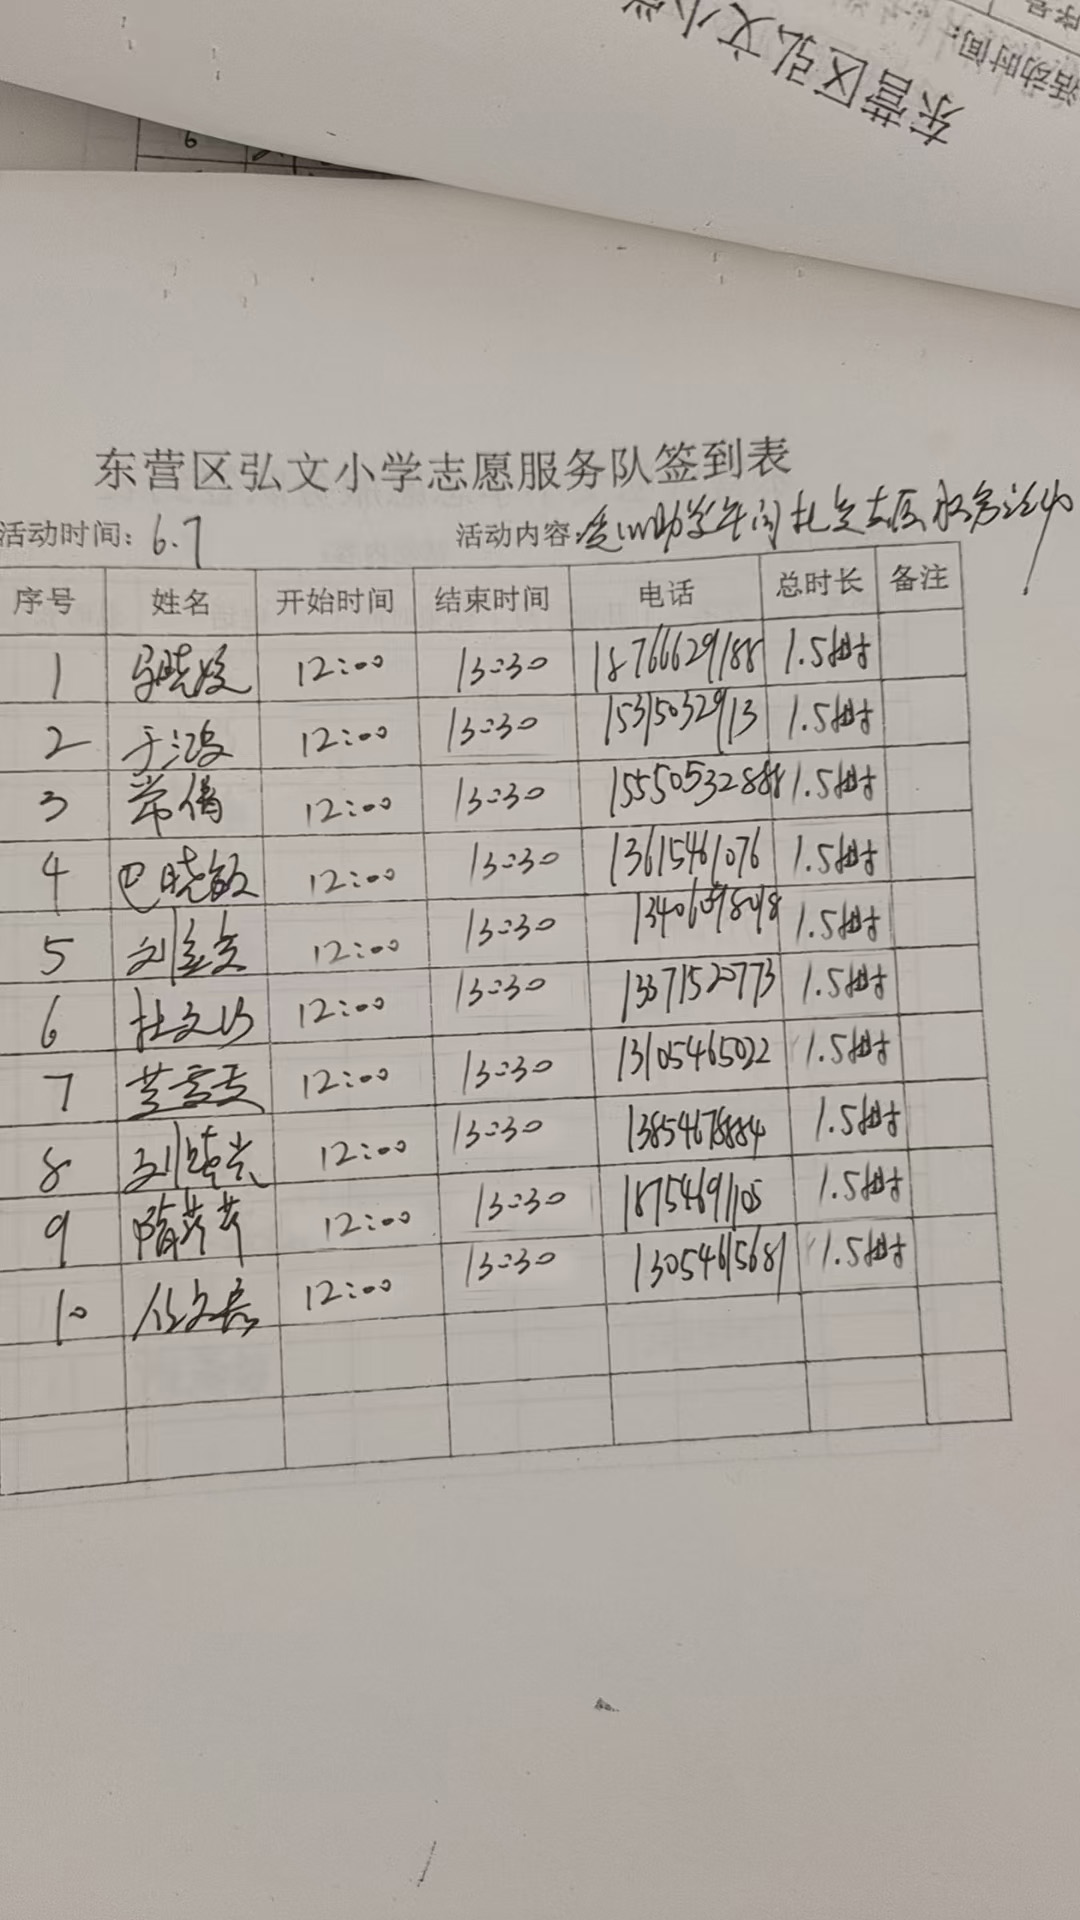 东营区弘文小学
活动时间:
序号
6
东营区弘文小学志愿服务队签到表
活动时间: 6.7 活动内容: 助学午间 志愿服务活动
序号 姓名 开始时间 结束时间 电话 总时长 备注
1 马晓媛 12:00 13:30 18766629188 1.5小时
2 于鸿 12:00 13:30 15315032913 1.5小时
3 常倩 12:00 13:30 15550532888 1.5小时
4 巴晓敏 12:00 13:30 13615461076 1.5小时
5 12:00 13:30 1.5小时
6 杜文 12:00 13:30 13371520773 1.5小时
7 12:00 13:30 13105465022 1.5小时
8 12:00 13:30 13854678884 1.5小时
9 隋芹芹 12:00 13:30 18754691105 1.5小时
10 任文 12:00 13:30 13054615681 1.5小时